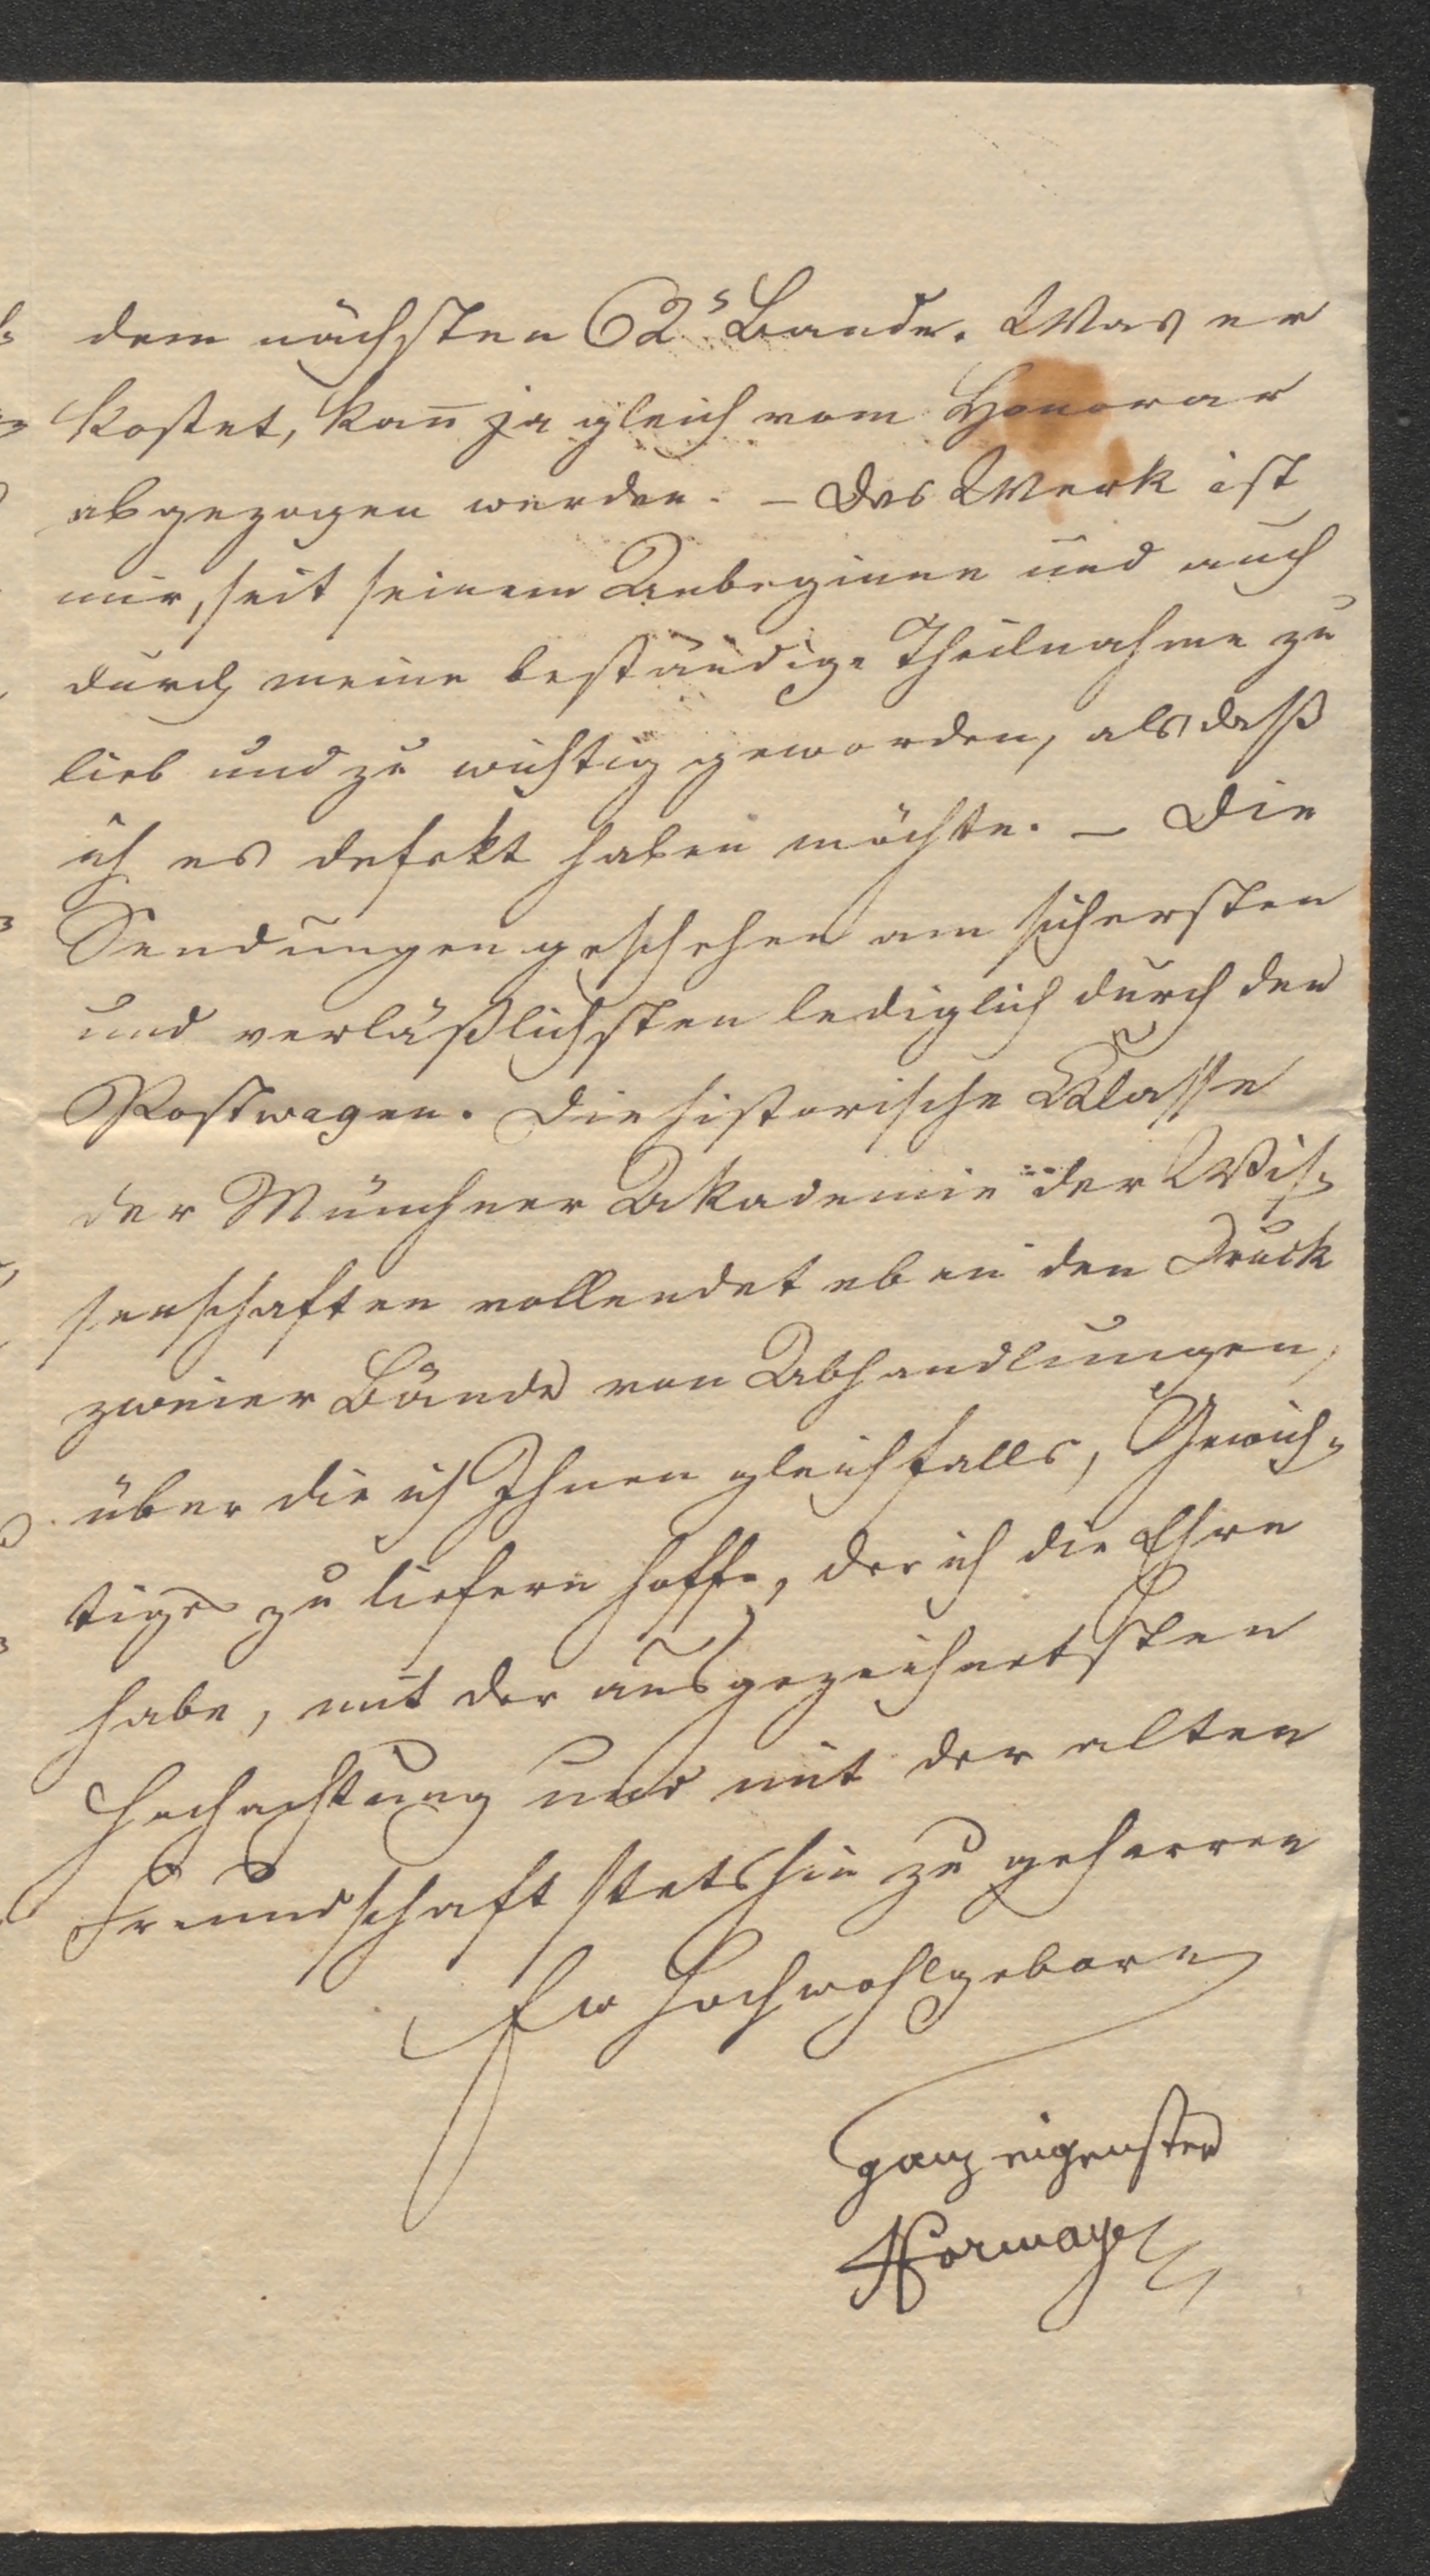 dem nächsten 62ˢ Bande. Was er
kostet, kan̅ ja gleich vom Honorar
abgezogen werden. – Das Werk ist
mir, seit seinem Anbeginne und auch
durch meine beständige Theilnahme zu
lieb und zu wichtig geworden, als daß
ich es defekt haben möchte. – Die
Sendungen geschehen am sichersten
und verläßlichsten lediglich durch den
Postwagen. Die historische Klasse
der Münchner Akademie der Wis=
senschaften vollendet eben den Druck
zweier Bände von Abhandlungen,
über die ich Ihnen gleichfalls, Gewich=
tiges zu liefern hoffe, der ich die Ehre
habe, mit der ausgezeichnetsten
Hochachtung und mit der alten
Freundschaft stetshin zu geharren
Ew Hochwohlgeboren
ganz eigenster
Hormayr